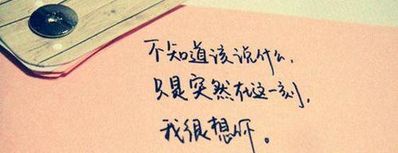 不知道该说什么,
只是突然在这一刻,
我很想你。